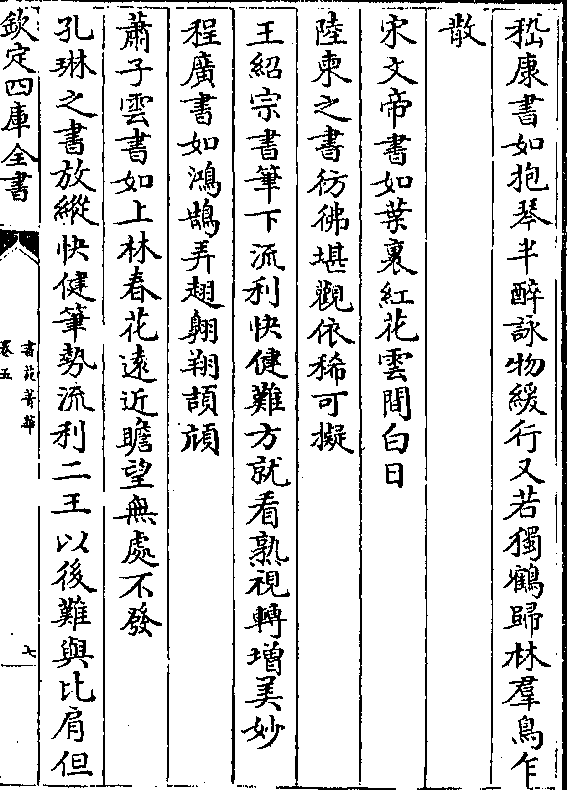 嵇康書如抱琴半醉詠物緩行又若獨鶴歸林羣鳥乍
散
宋文帝書如葉裏紅花雲間白日
陸柬之書彷彿堪觀依稀可擬
王紹宗書筆下流利快健難方就看熟視轉增美妙
程廣書如鴻鵠弄翅翺翔頡頏
蕭子雲書如上林春花遠近瞻望無處不發
孔琳之書放縱快健筆勢流利二王以後難與比肩但
欽定四庫全書
書苑菁華
卷五
七